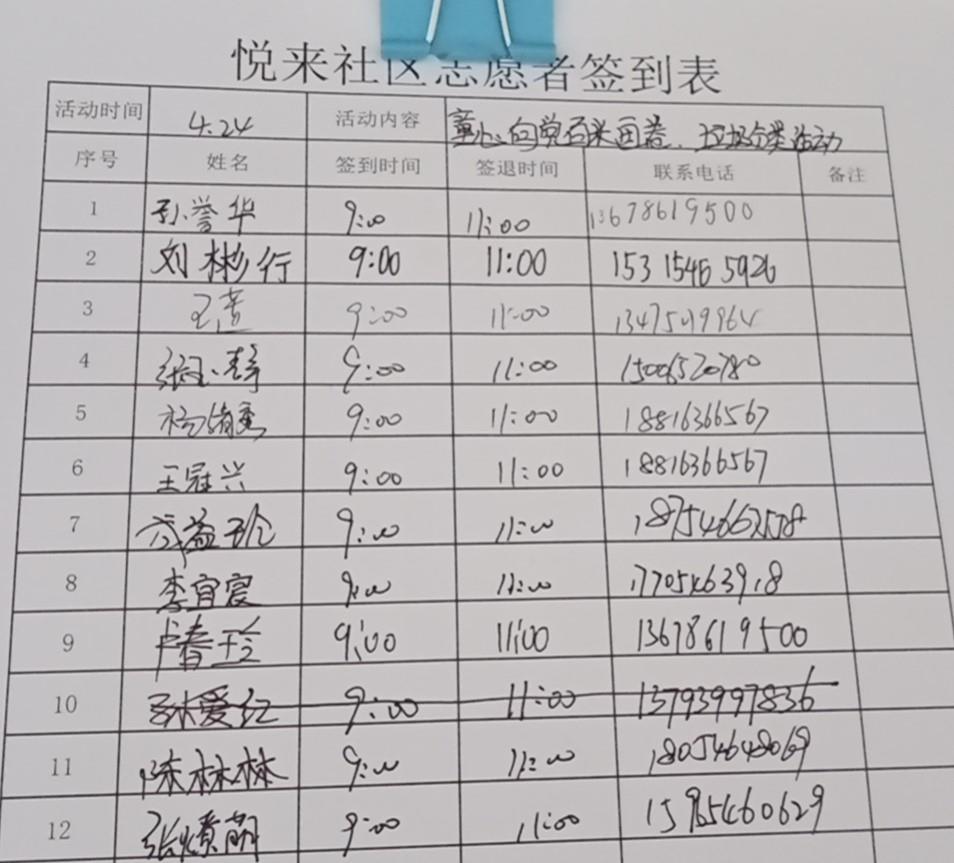 悦来社区志愿者签到表
活动时间 4.24 活动内容 童心向党百米画卷、垃圾分类活动
序号 姓名 签到时间 签退时间 联系电话 备注
1 孙誉华 9:00 11:00 13678619500
2 刘彬行 9:00 11:00 153 1546 5926
3 9:00 11:00
4 9:00 11:00 15006520780
5 9:00 11:00 18816366567
6 王冠兴 9:00 11:00 18816366567
7 9:00 11:00 18754662578
8 李宜宸 9:00 11:00 17705463918
9 卢春玲 9:00 11:00 13678619500
10 孙爱红 9:00 11:00 13793997836
11 陈林林 9:00 11:00 18054648069
12 9:00 11:00 15965460629